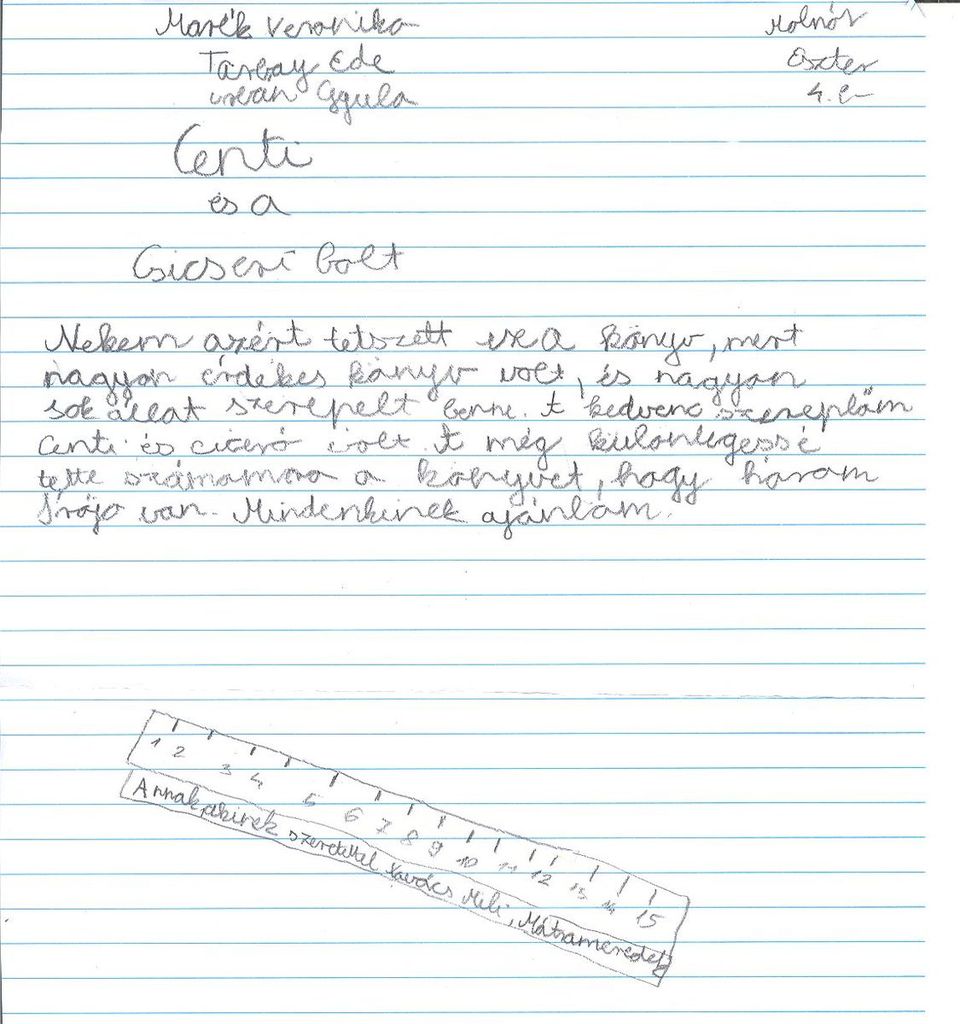 Marék Veronika
Molnár
Tarbay Ede
Eszter
Urbán Gyula
4. e
Centi
és a
Csicseri bolt
Nekem azért tetszett ez a könyv, mert
nagyon érdekes könyv volt, és nagyon
sok állat szerepelt benne. A kedvenc szereplőm
Centi és Ciceró volt. A még különlegessé
tette számomra a könyvet, hogy három
írója van. Mindenkinek ajánlom.
1 2 3 4 5 6 7 8 9 10 11 12 13 14 15
Annak, akinek szeretettel Kovács Meli, Mátrameredek